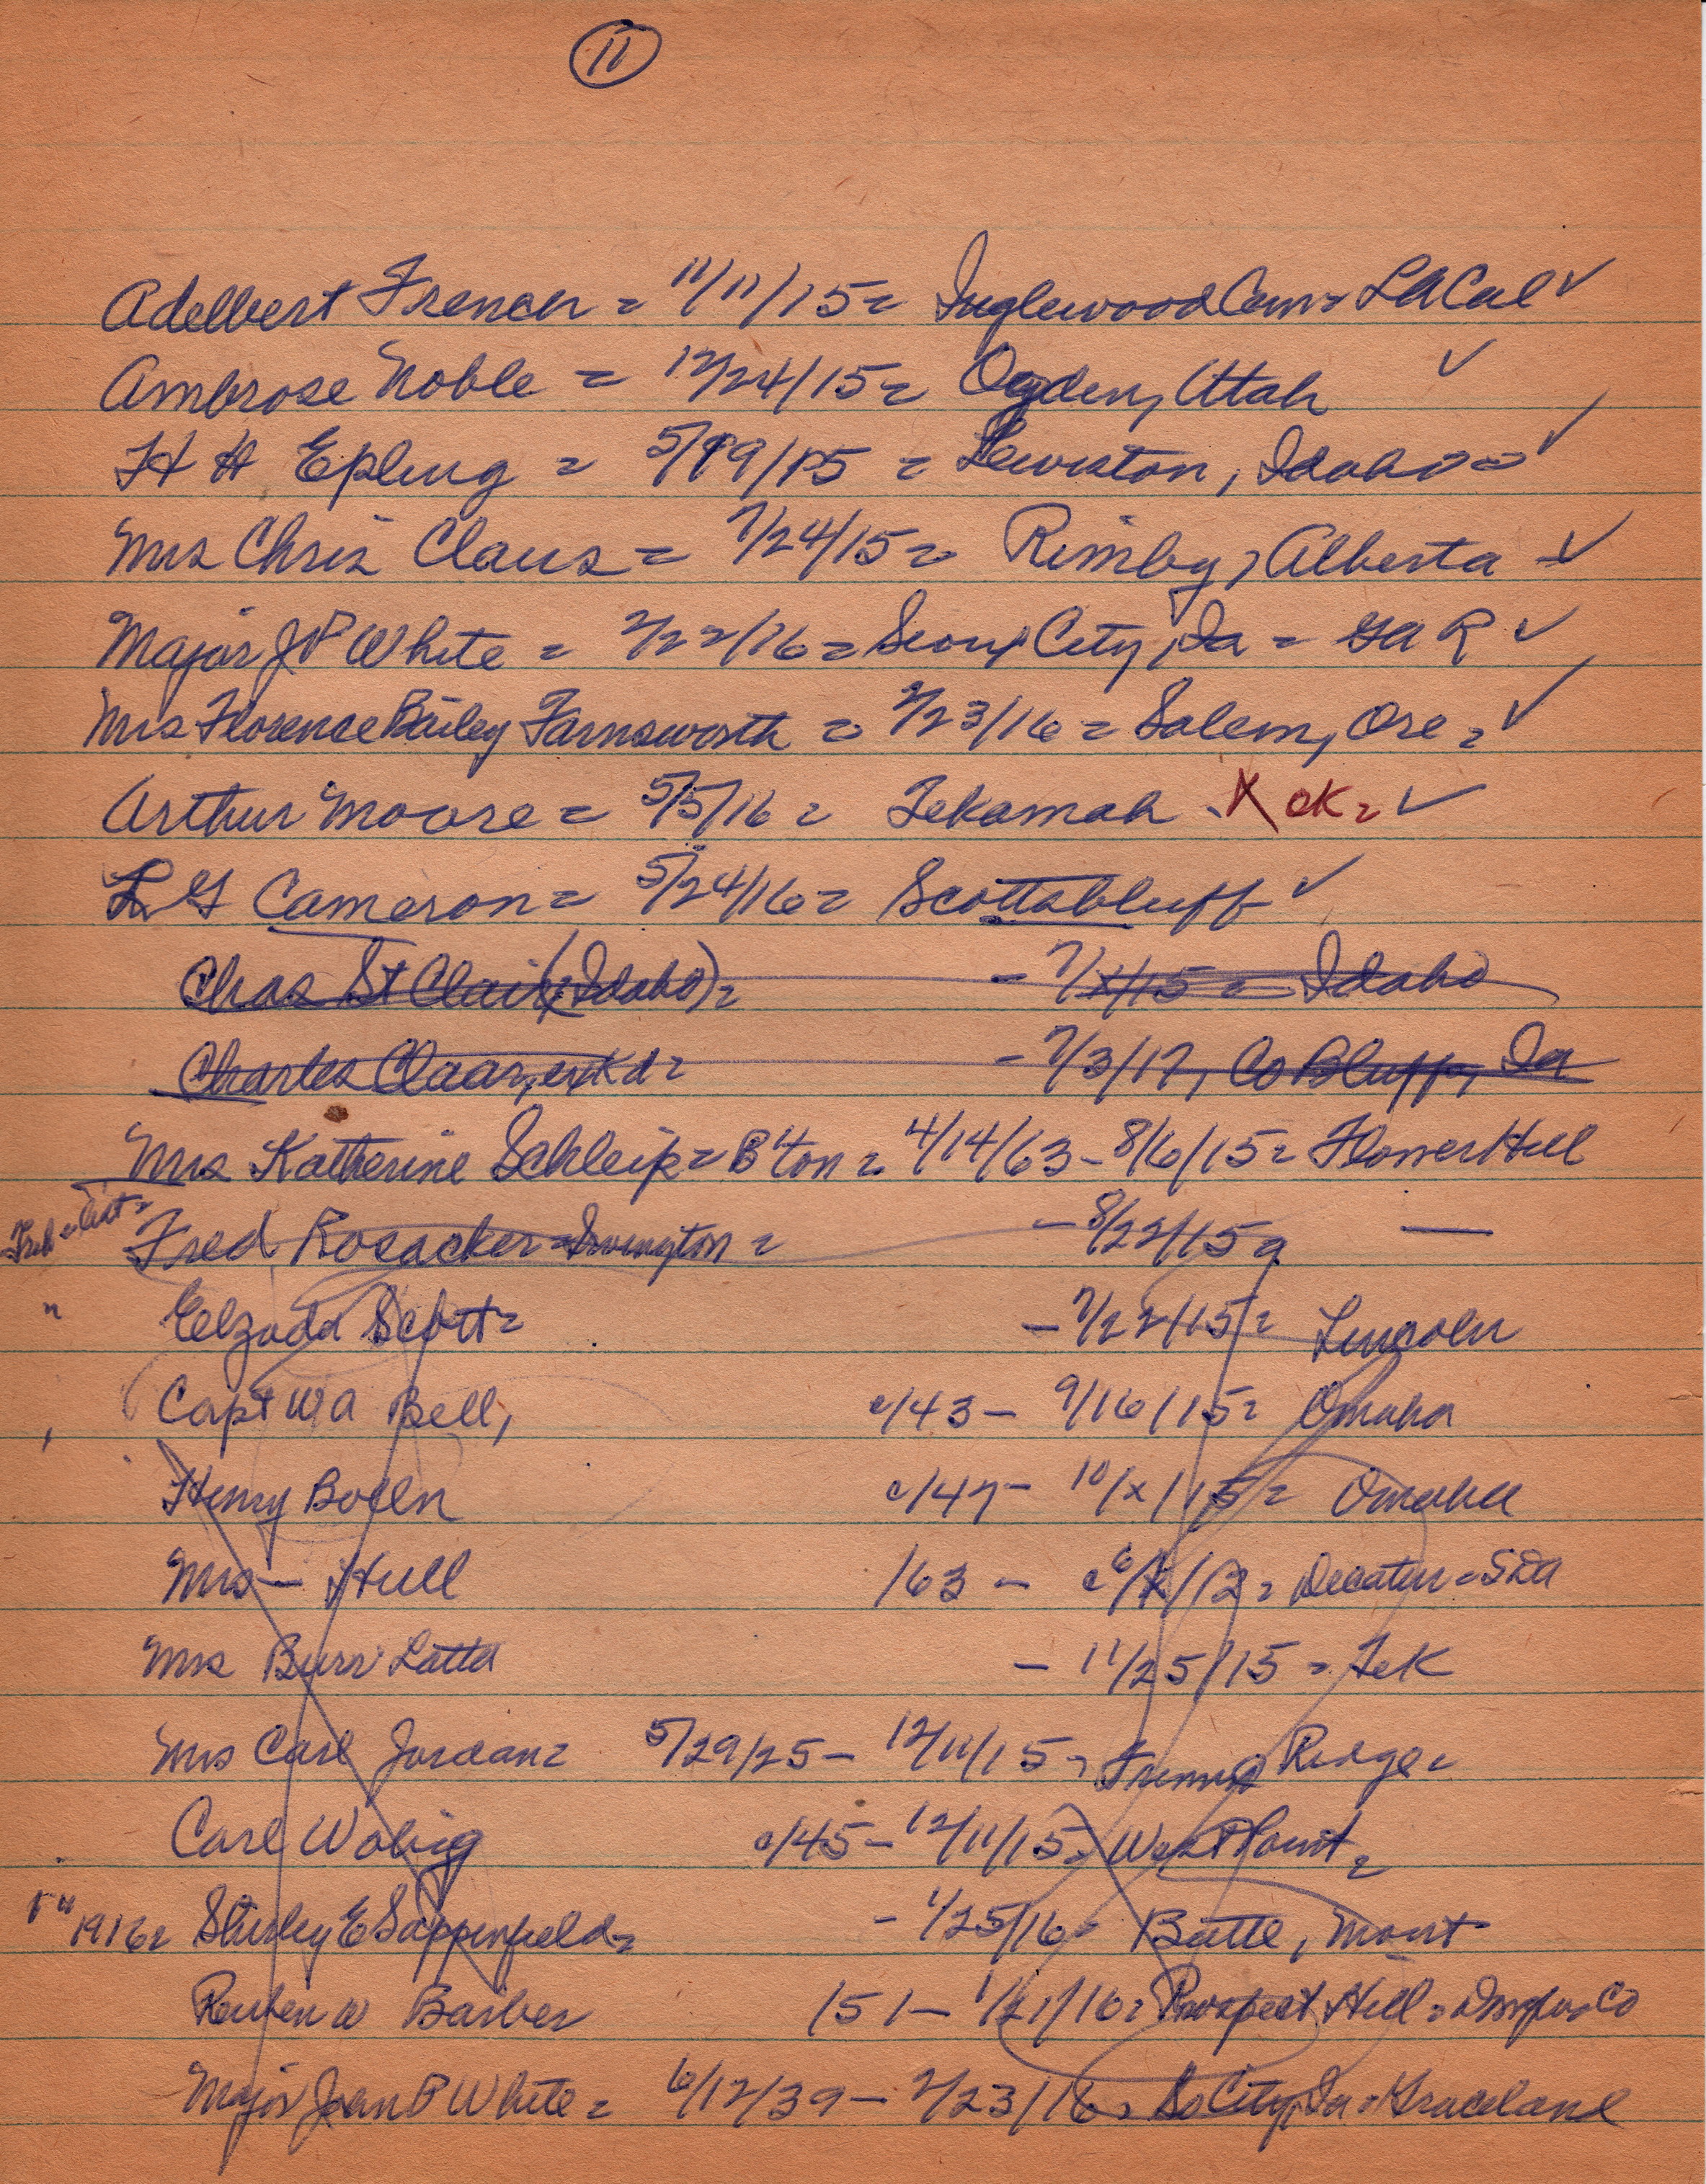 11
Adelbert French = 11/11/15 = Inglewood Cem = LA Cal ✓
Ambrose Noble = 12/24/15 = Ogden, Utah ✓
H H Epling = 5/19/15 = Lewiston, Idaho = ✓
Mrs Chris Claus = 7/24/15 = Rimby, Alberta ✓
Major JP White = 2/22/16 = Sioux City, Ia = GAR ✓
Mrs Florence Bailey Farnsworth = 2/23/16 = Salem, Ore = ✓
Arthur Moore = 5/5/16 = Tekamah X OK = ✓
L G Cameron = 5/24/16 = Scottsbluff ✓
Chas St Clair (Idaho) = - 7/x/15 = Idaho
Charles Claar, = - 7/3/17, Co Bluffs, Ia
Mrs Katherine Schleip = B'ton = 4/14/63 - 8/6/15 = Flower Hill
Fred Rosacker = Irvington = - 8/22/15 = —
" Elzada Scott = - 7/22/15 = Lincoln
Capt WA Bell, c/43 - 9/16/15 = Omaha
Henry Bolln c/47 - 10/x/15 = Omaha
Mrs — Hull /63 - c 6/x/12 = Decatur =
Mrs Burr Latta - 11/25/15 = Tek
Mrs Carl Jordan = 5/29/25 - 12/11/15 = Ridge =
Carl Wobig c/45 - 12/11/15 = West Point =
1916 = Shirley E Sappenfield = - 1/25/16 = Butte, Mont
Reuben W Barber /51 - 1/21/16 = Prospect Hill = Co
Major Jean B White = 6/12/39 - 2/23/16 = So City, Ia = Graceland